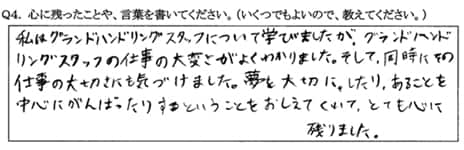 Q4. 心に残ったことや、言葉を書いてください。（いくつでもよいので、教えてください。）
私はグランドハンドリングスタッフについて学びましたが、グランドハンド
リングスタッフの仕事の大変さがよくわかりました。そして、同時にその
仕事の大切さにも気づけました。夢を大切に。したり、あることを
中心にがんばったりするということをおしえてくれて、とても心に
残りました。